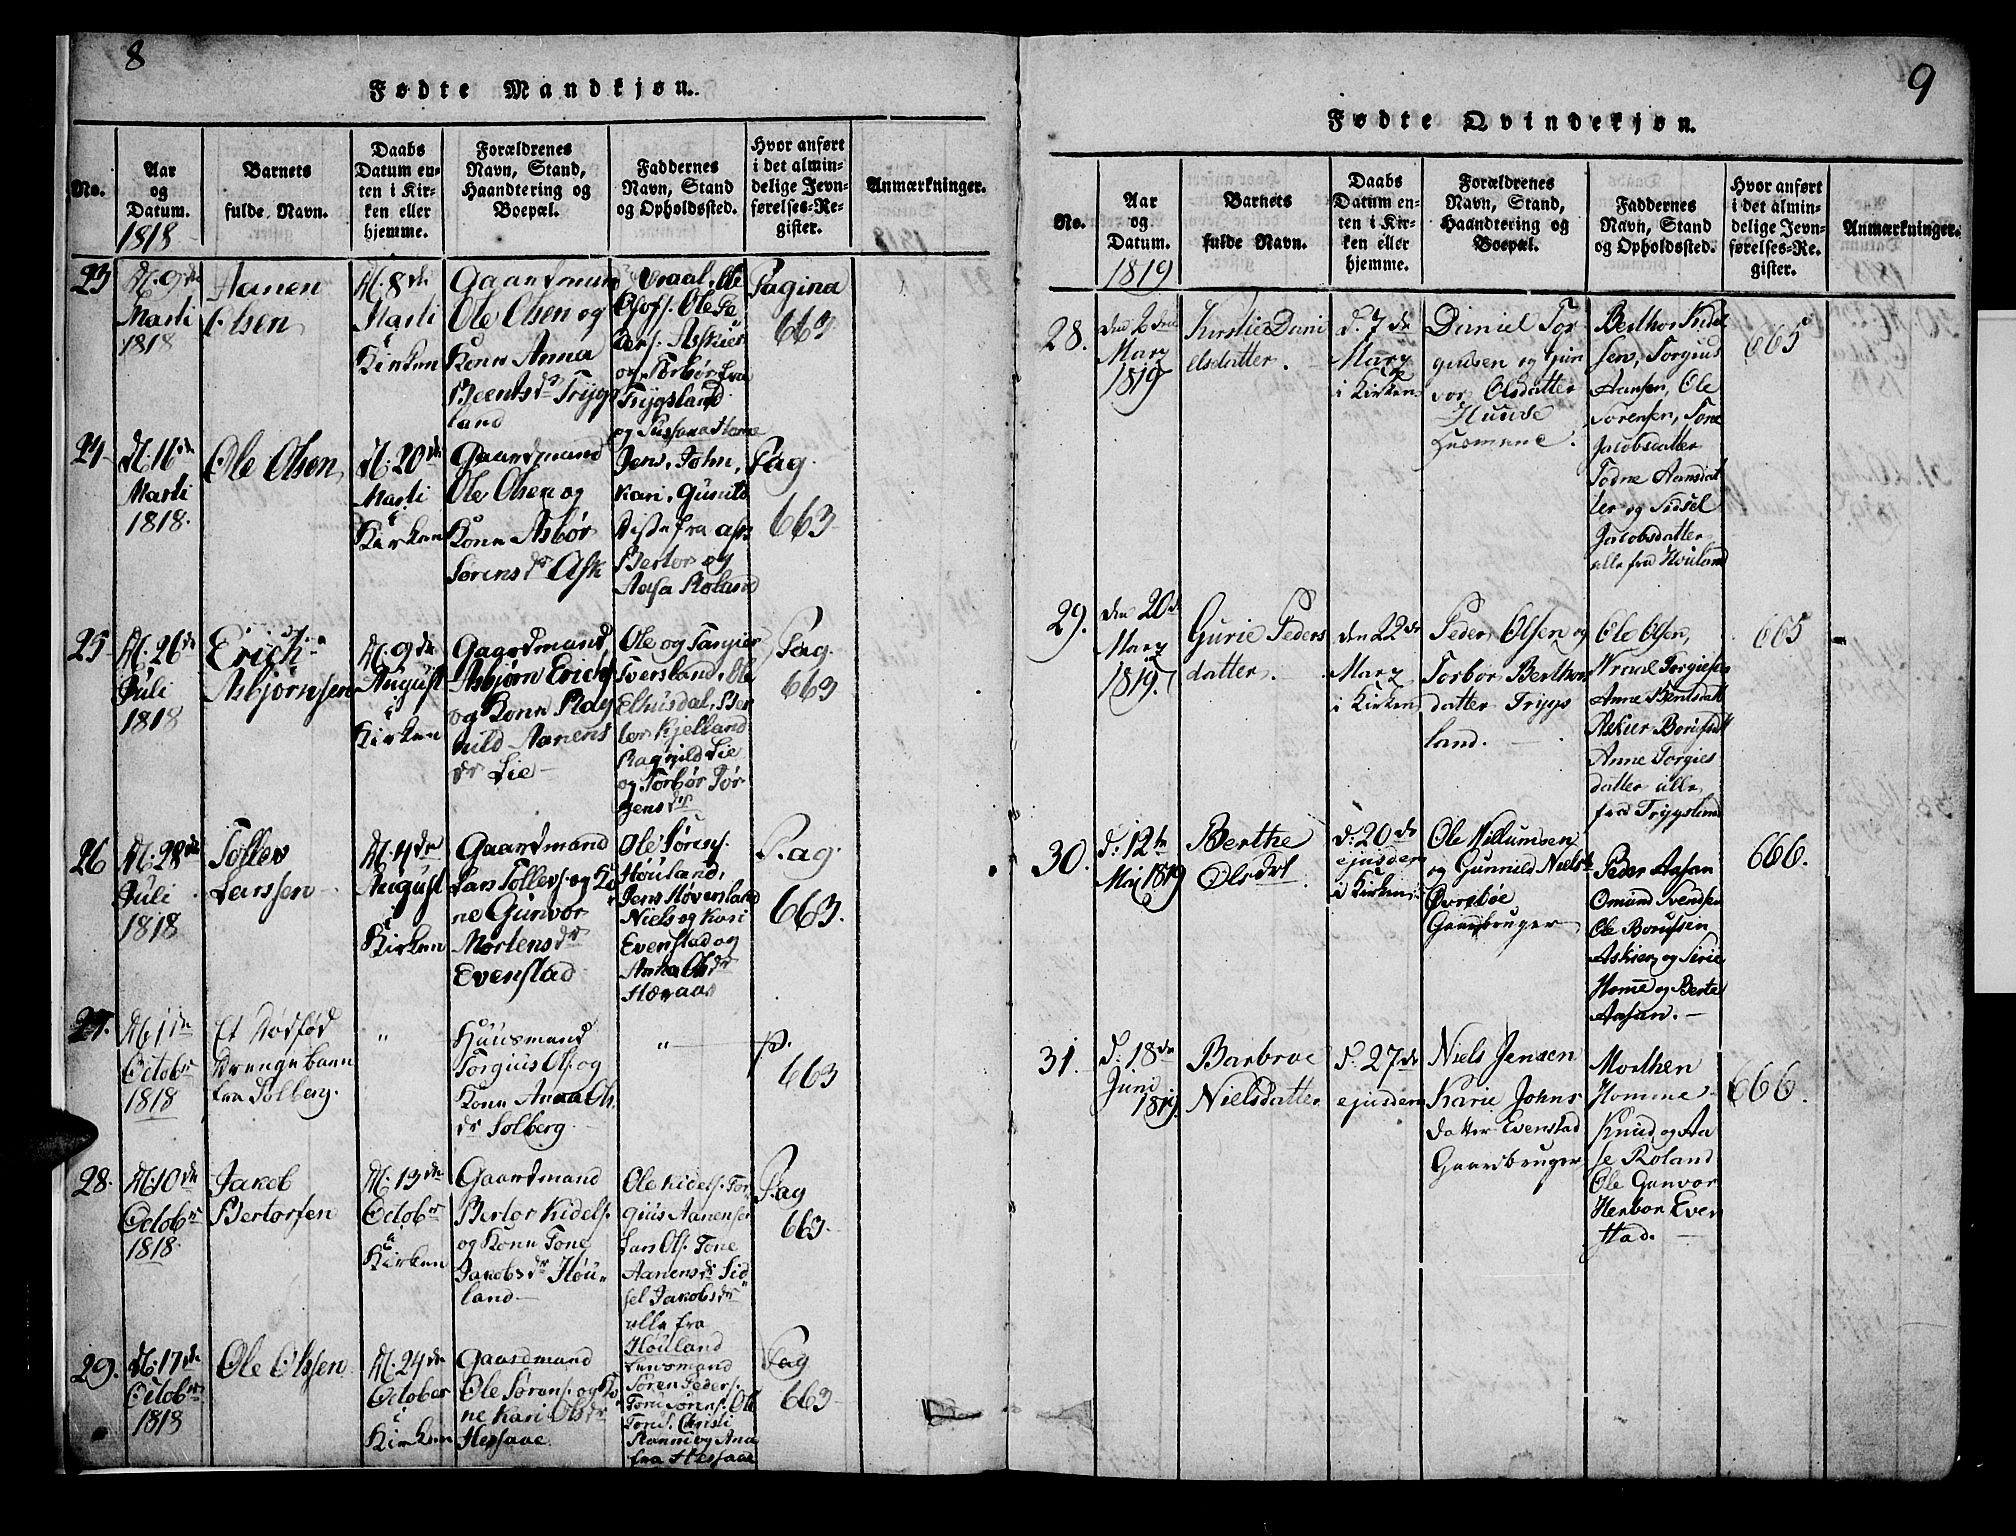 8
Fødte Mandkjøn.
No.
Aar
og
Datum.
1818
Barnets
fulde Navn.
Daabs
Datum en-
ten i Kir-
ken eller
hjemme.
Forældrenes
Navn, Stand,
Haandtering og
Boepæl.
Faddernes
Navn, Stand
og Opholdssted.
Hvor anført
i det almin-
delige Jevn-
førelses-Re-
gister.
Anmærkninger.
23
D. 9de
Marti
1818
Aanen
Olsen
D. 8de
Marti
i
Kirken
Gaardmand
Ole Olsen og
Kone Anna
Beents dr Trygs
land
Ole Pe
og Torbør fra
Trygsland
og Susana Home
Pagina
663
24
D. 16de
Marti
1818.
Ole Olsen
D. 20de
Marti
i
Kirken
Gaardmand
Ole Olsen og
Kone Asbør
Sørens dr Ask
Jens, John,
Kari, Gunild
Siste fra Ask
Bertor og
Aasa Roland
Pag.
663
25
D. 26de
Juli
1818
Erich
Asbjørnsen
D. 9de
August
i
Kirken
Gaardmand
Asbjørn Erichs
og Kone Rag
nild Aanens
dr Lie
Ole og Tangier
Sversland, Ole
Elhusdal, Ber
tor Kjelland
Ragnild Lie
og Torbør Tor
gens dr
Pag.
663
26
D. 28de
Juli
1818
Tollev
Larssen
D. 4de
August
i
Kirken
Gaardmand
Lars Tollevs. og Ko
ne Gunvor
Mortens dr
Evenstad
Ole Sørens.
Høuland,
Jens Høversland
Niels og Kari
Evenstad og
Anna Ols dr
Heraas
Pag.
663.
27.
D. 1de
Octobr
1818
Et Dødfød
Drengebarn
fra Solberg.
"
Huusmand
Torgius Ols. og
Kone Anna Ols
dr Solberg
"
p.
663
28.
D. 10de
Octobr
1818.
Jakob
Bertorsen
D. 13de
Octobr
i
Kirken
Gaardmand
Bertor Kidels.
og Kone Tone
Jakobs dr Høu-
land
Ole Kidels. Tor
gius Aanensen
Lars Ols. Tone
Aanens dr Sid
sel Jakobs dr
alle fra
Høuland
Pag
663.
29.
D. 17de
Octobr
1818
Ole Olssen
D. 24de
October
i
Kirken
Gaardmand
Ole Sørens. og Ko
ne Kari Ols dr
Hessaae
Lensmand
Søren Peders.
Tone Sørens. Ole
Tons. Christi
Ronni og Ana
fra Hessaae
Pag
663
9
Fødte Qvindekjøn.
No.
Aar
og
Datum.
1819
Barnets
fulde Navn.
Daabs
Datum en-
ten i Kir-
ken eller
hjemme.
Forældrenes
Navn, Stand,
Haandtering og
Boepæl.
Faddernes
Navn, Stand
og Opholdssted.
Hvor anført
i det almin-
delige Jevn-
førelses-Re-
gister.
Anmærkninger.
28.
den 2den
Marz
1819
Kirstie Dani
elsdatter.
d. 7de
Marz
i Kirken
Daniel Tor
gusen og Gun
vor Olsdatter
Huuse
Husmand.
Berthor Kidel
sen, Torgius
Aansen, Ole
Sorensen, Tone
Jacobsdatter
Todne Aansdat
ter og Sidsel
Jacobsdatter
alle fra Houland
665
29.
den 20de
Marz
1819.
Gurie Peders
datter.
den 22de
Marz
i Kirken
Peder Olsen og
Torbor Berthor
datter Trygs
land.
Ole Olsen,
Vraal Torgiesen
Anne Bentsdatt
Askier Borufsdt
Anne Torgies
datter alle
fra Trygsland
665
30.
d. 12te
Mai 1819
Berthe
Olsdat.
d. 20de
ejusdem
i Kirken
Ole Villumsen
og Gunnild Nielsd
Øvrebøe
Gaardbruger
Peder Aasan
Omund Svendsen
Ole Borufsen
Askier og Sirie
Homme og Berte
Aasan.
666.
31.
d. 18de
Juni
1819.
Barbroe
Nielsdatter
d. 27de
ejusdem
Niels Jensen
Karie Johns
datter Evenstad
Gaardbruger
Morthen
Homme
Knud og Aa
se Roland
Ole Gunvor
Herbor Even
stad.
666.